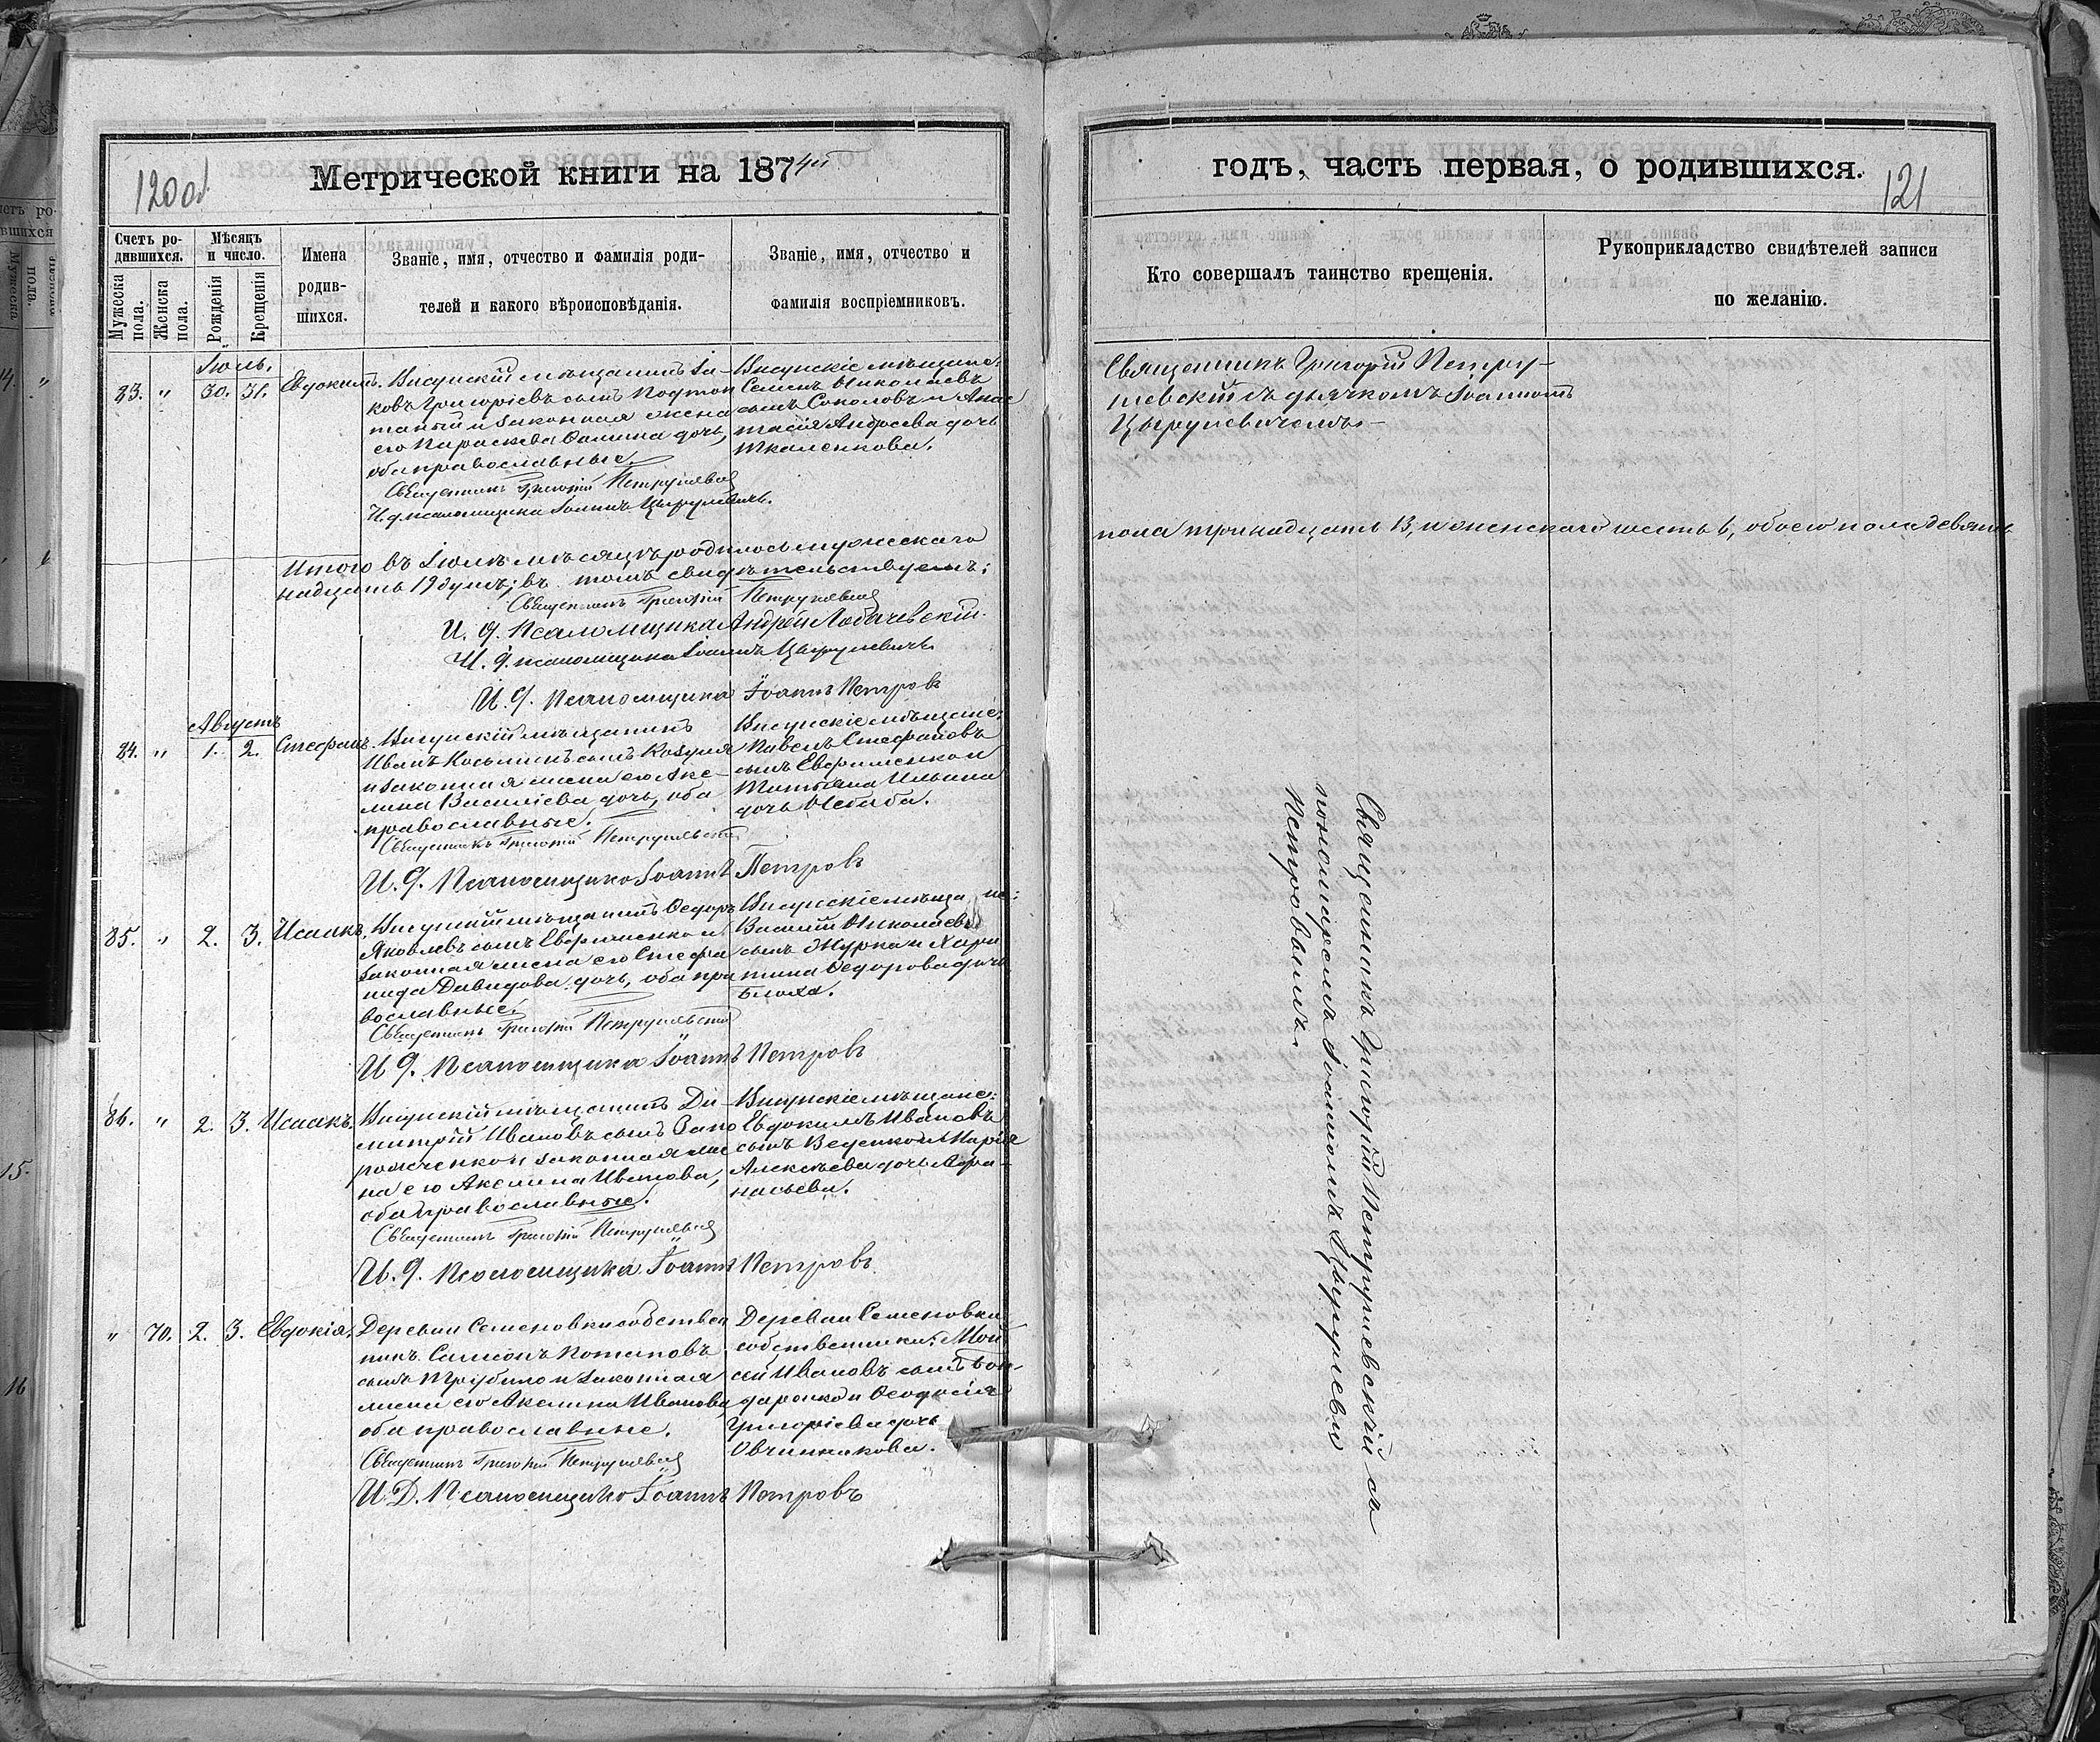 120об
Метрической книги на 1874й
годъ, часть первая, о родившихся.
121
Счетъ ро-
дившихся.
Мужеска пола.
Женска пола.
Мѣсяцъ
и число.
Рожденія
Крещенія
Имена
родив-
шихся.
Званіе, имя, отчество и фамилія роди-
телей и какого вѣроисповѣданія.
Званіе, имя, отчество и
фамилія воспріемниковъ.
Кто совершалъ таинство крещенія.
Рукоприкладство свидѣтелей записи
по желанію.
Іюль.
83. " 30. 31. Евдокимъ.
Висунскій мѣщанинъ Іа-
ковъ Григоріевъ сынъ
и законная жена
его Параскева Фомина дочь,
оба православные.
Священникъ Григорій Петрушевскій
И. д. псаломщика Іоаннъ Цырулевичъ.
Висунскіе мѣщане:
Семенъ Николаевъ
сынъ Соколовъ и Анас
тасія Андреева дочь
Ткаленкова.
Священникъ Григорій Петру-
шевскій съ дьячкомъ Іоанномъ
Цырулевичемъ.-
Итого въ Іюлѣ мѣсяцѣ родилось мужескаго
пола тринадцать 13, и женскаго шесть 6, обоего пола девять
надцать 19 душъ; въ томъ свидѣтельствуемъ:
Священникъ Григорій Петрушевскій
И. д. Псаломщика Андрей Лобачевскій.
И. д. псаломщика Іоаннъ Цырулевичъ
И. д. Псаломщика Іоаннъ Петровъ
Августъ
84. " 1. 2. Стефанъ.
Висунскій мѣщанинъ
Иванъ Косьминъ сынъ Козуля
и законная жена его Аке-
лина Василіева дочь, оба
православные.
Священникъ Григорій Петрушевскій
И. д. Псаломщика Іоаннъ Петровъ
Висунскіе мѣщане:
Павелъ Стефановъ
сынъ Ефрименко и
Татьяна Ильина
дочь
85. " 2. 3. Исаакъ.
Висунскій мѣщанинъ Ѳедоръ
Яковлевъ сынъ Ефрименко и
законная жена его Стефа
нида Давидова дочь, оба пра
вославные.
Священникъ Григорій Петрушевскій
И д. Псаломщика Іоаннъ Петровъ
Висунскіе мѣщане:
Василій Николаевъ
сынъ Журка и Хари
тина Ѳедорова дочь
Блоха.
86. " 2. 3. Исаакъ.
Висунскій мѣщанинъ Ди-
митрій Ивановъ сынъ Запо
рожченко и законная же
на его Акелина Иванова,
оба православные.
Священникъ Григорій Петрушевскій
И. д. Псаломщика Іоаннъ Петровъ
Висунскіе мѣщане:
Евдокимъ Ивановъ
сынъ Веденко и Марія
Алексѣева дочь Афа-
насьева.
" 70. 2. 3. Евдокія.
Деревни Семеновки собствен
никъ Самсонъ Потаповъ
сынъ и законная
жена его Акелина Иванова
оба православные.
Священникъ Григорій Петрушевскій
И. Д. Псаломщика Іоаннъ Петровъ
Деревни Семеновки
собственники: Мои
сей Ивановъ сынъ Бон-
даренко и Ѳеодосія
Григоріева дочь
Овчинникова.
Священникъ Григорій Петрушевскій съ
пономаремъ Іоанномъ
Петровымъ.